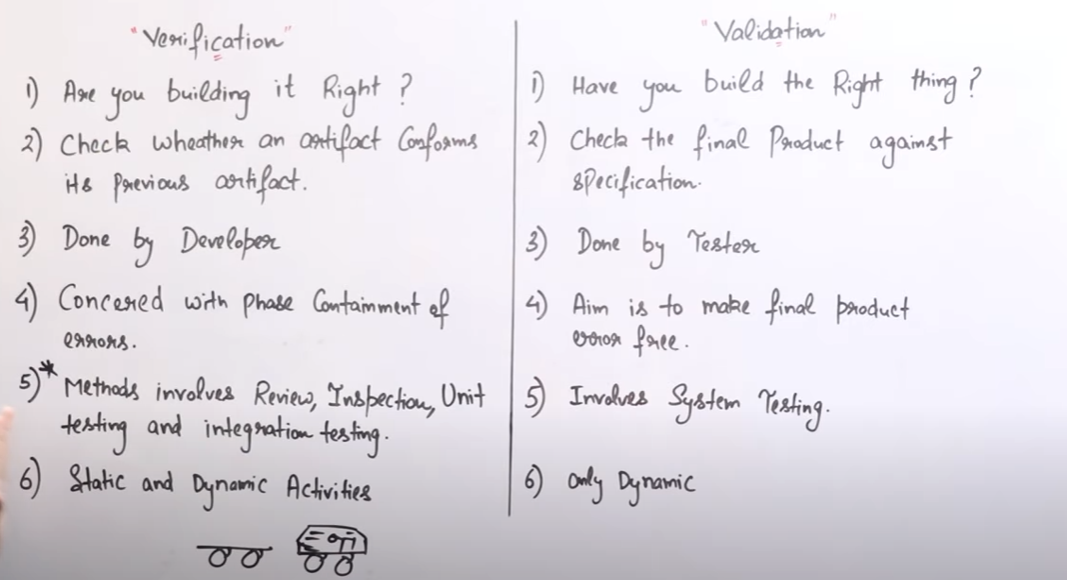 "Verification"
1) Are you building it Right ?
2) Check wheather an artifact Conforms
its Previous artifact.
3) Done by Developer
4) Concered with Phase Containment of
errors.
5)* Methods involves Review, Inspection, Unit
testing and integration testing.
6) Static and Dynamic Activities
"Validation"
1) Have you build the Right thing ?
2) Check the final Product against
specification.
3) Done by Tester
4) Aim is to make final product
error free.
5) Involves System Testing.
6) Only Dynamic